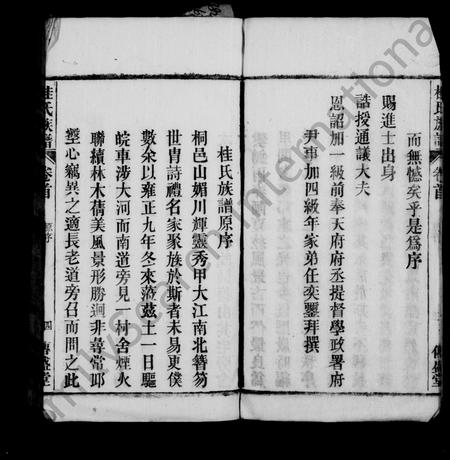 桂氏族譜 卷首
而無憾矣乎是為序
賜進士出身
誥授通議大夫
恩詔加一級前奉天府府丞提督學政署府
尹事加四級年家弟任奕鑾拜撰
傳盛堂
桂氏族譜原序
桐邑山媚川輝靈秀甲大江南北簪笏
世胄詩禮名家聚族於斯者未易更僕
數余以雍正九年冬來蒞茲土一日驅
皖車涉大河而南道旁見村舍煙火
聯續林木蒨美風景形勝迥非尋常邱
壑心竊異之適長老道旁召而問之此
桂氏族譜 卷首 原序 四 傳盛堂
My Search International